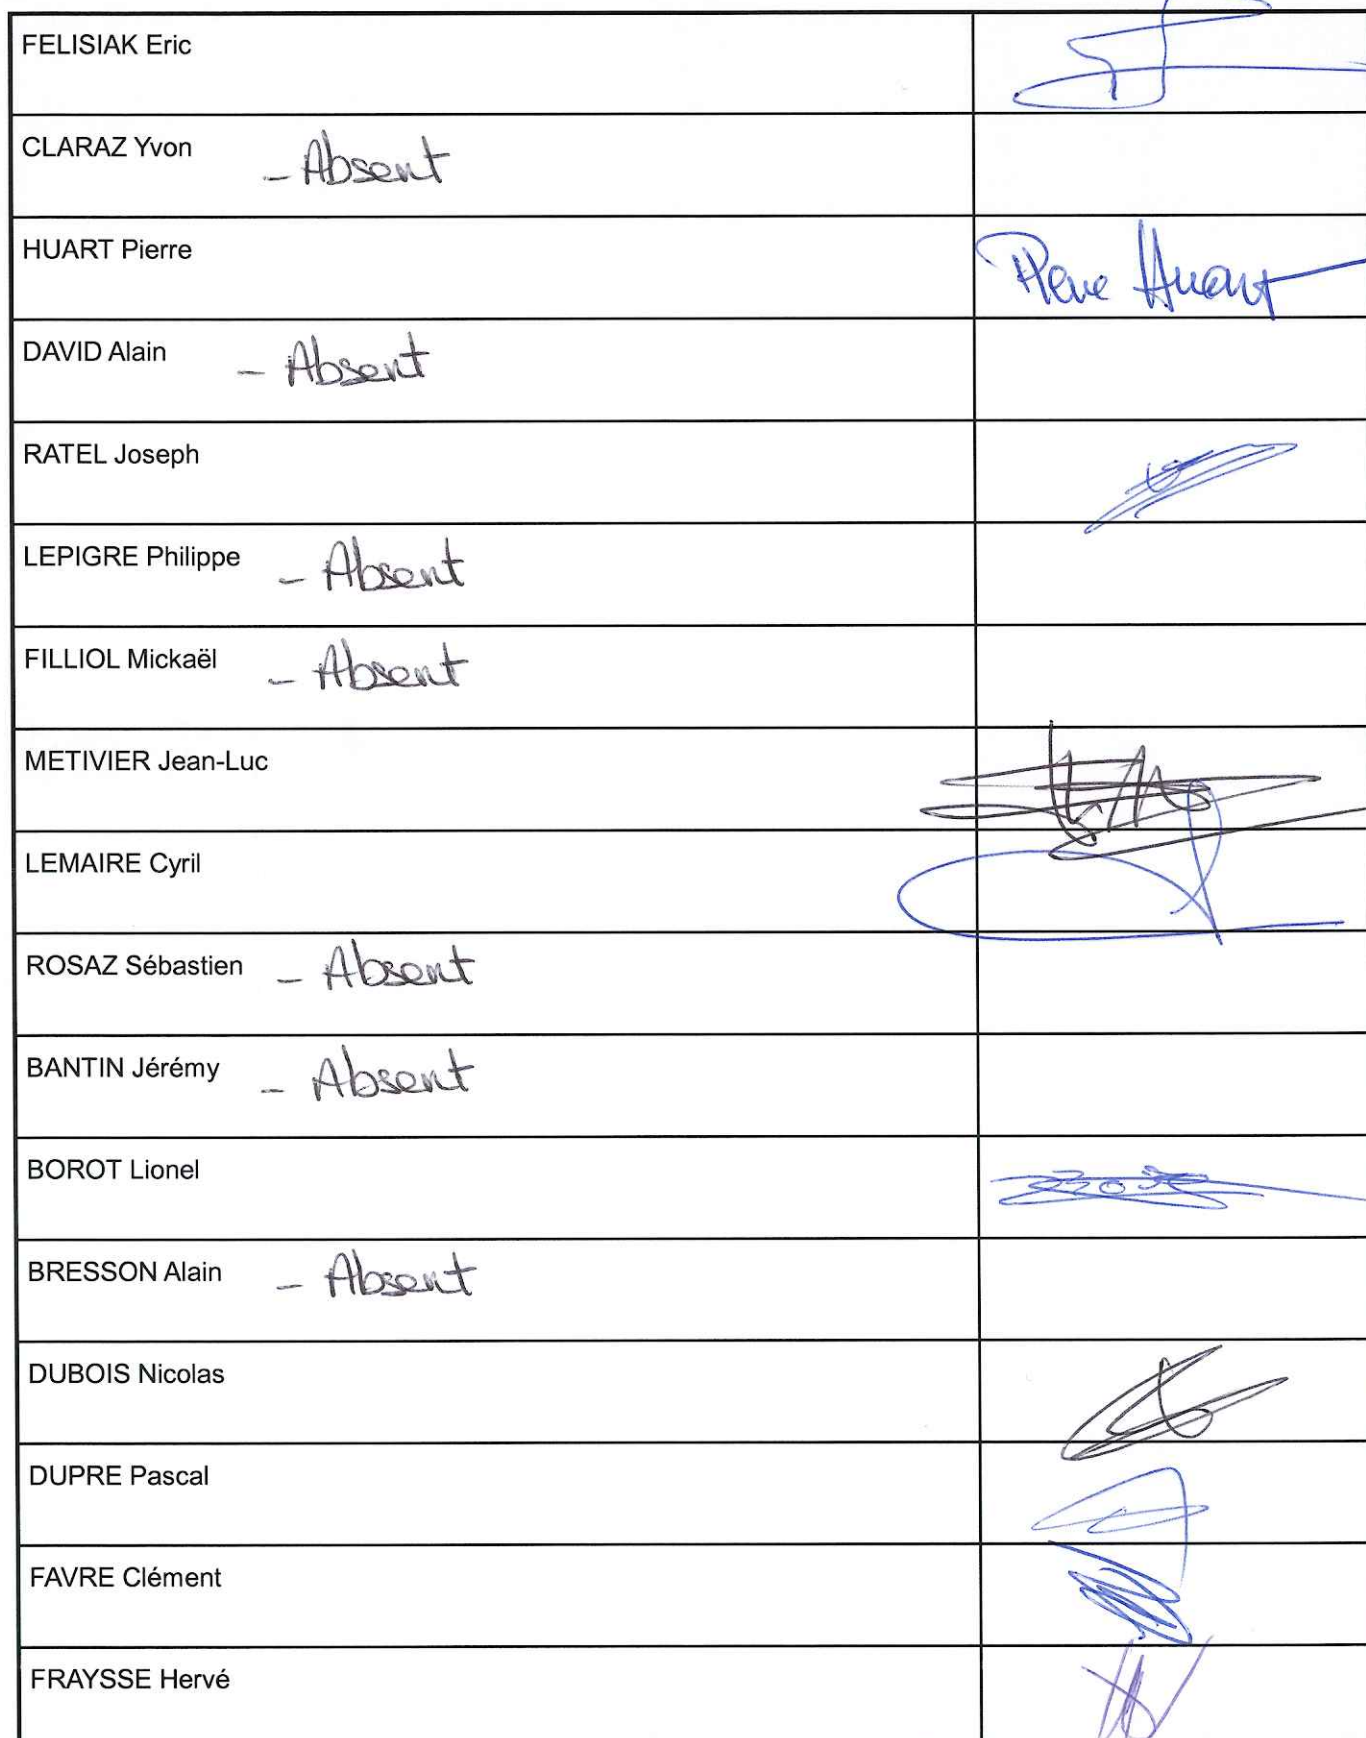 FELISIAK Eric
CLARAZ Yvon - Absent
HUART Pierre Pierre Huart
DAVID Alain - Absent
RATEL Joseph
LEPIGRE Philippe - Absent
FILLIOL Mickaël - Absent
METIVIER Jean-Luc
LEMAIRE Cyril
ROSAZ Sébastien - Absent
BANTIN Jérémy - Absent
BOROT Lionel
BRESSON Alain - Absent
DUBOIS Nicolas
DUPRE Pascal
FAVRE Clément
FRAYSSE Hervé